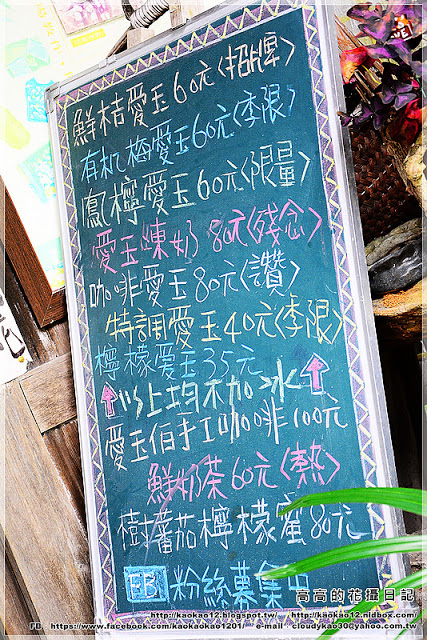 鮮桔愛玉60元〈招牌〉
有机梅愛玉60元〈季限〉
鳳檸愛玉60元〈限量〉
愛玉煉奶80元〈殘念〉
咖啡愛玉80元〈讚〉
特調愛玉40元〈季限〉
檸檬愛玉35元
↑以上均不加冰↑
愛玉佰手工咖啡100元
鮮奶茶60元〈熱〉
樹蕃茄檸檬蜜80元
FB 粉絲募集中
高高的花攝日記
http://kaokao12.blogspot.tw/ http://kaokao12.nidbox.com/
FB https://www.facebook.com/kaokaokao1201/ e-mail: cloudykao30@yahoo.com.tw